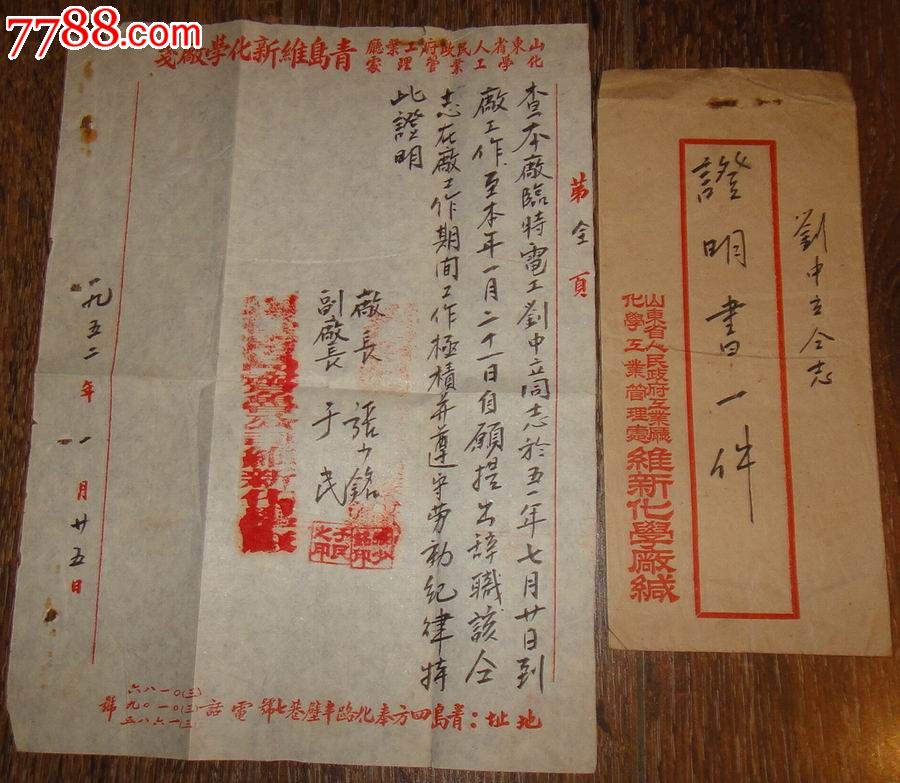 7788.com
山東省人民政府工業廳
化學工業管理處
青島維新化學廠箋
第全頁
查本廠臨時電工劉中立同志於五一年七月廿日到
廠工作至本年一月二十一日自願提出辞職該仝
志在廠工作期间工作極積并遵守劳动纪律特
此證明
廠長 張少銘
副廠長 于民
一九五二年一月廿五日
地址：青島四方奉化路半壁巷七號 電話
(三)〇一八六
(三)〇一〇九
(三)一六八五
號
劉中立仝志
證明書一件
山東省人民政府工業廳
化學工業管理處
維新化學廠緘